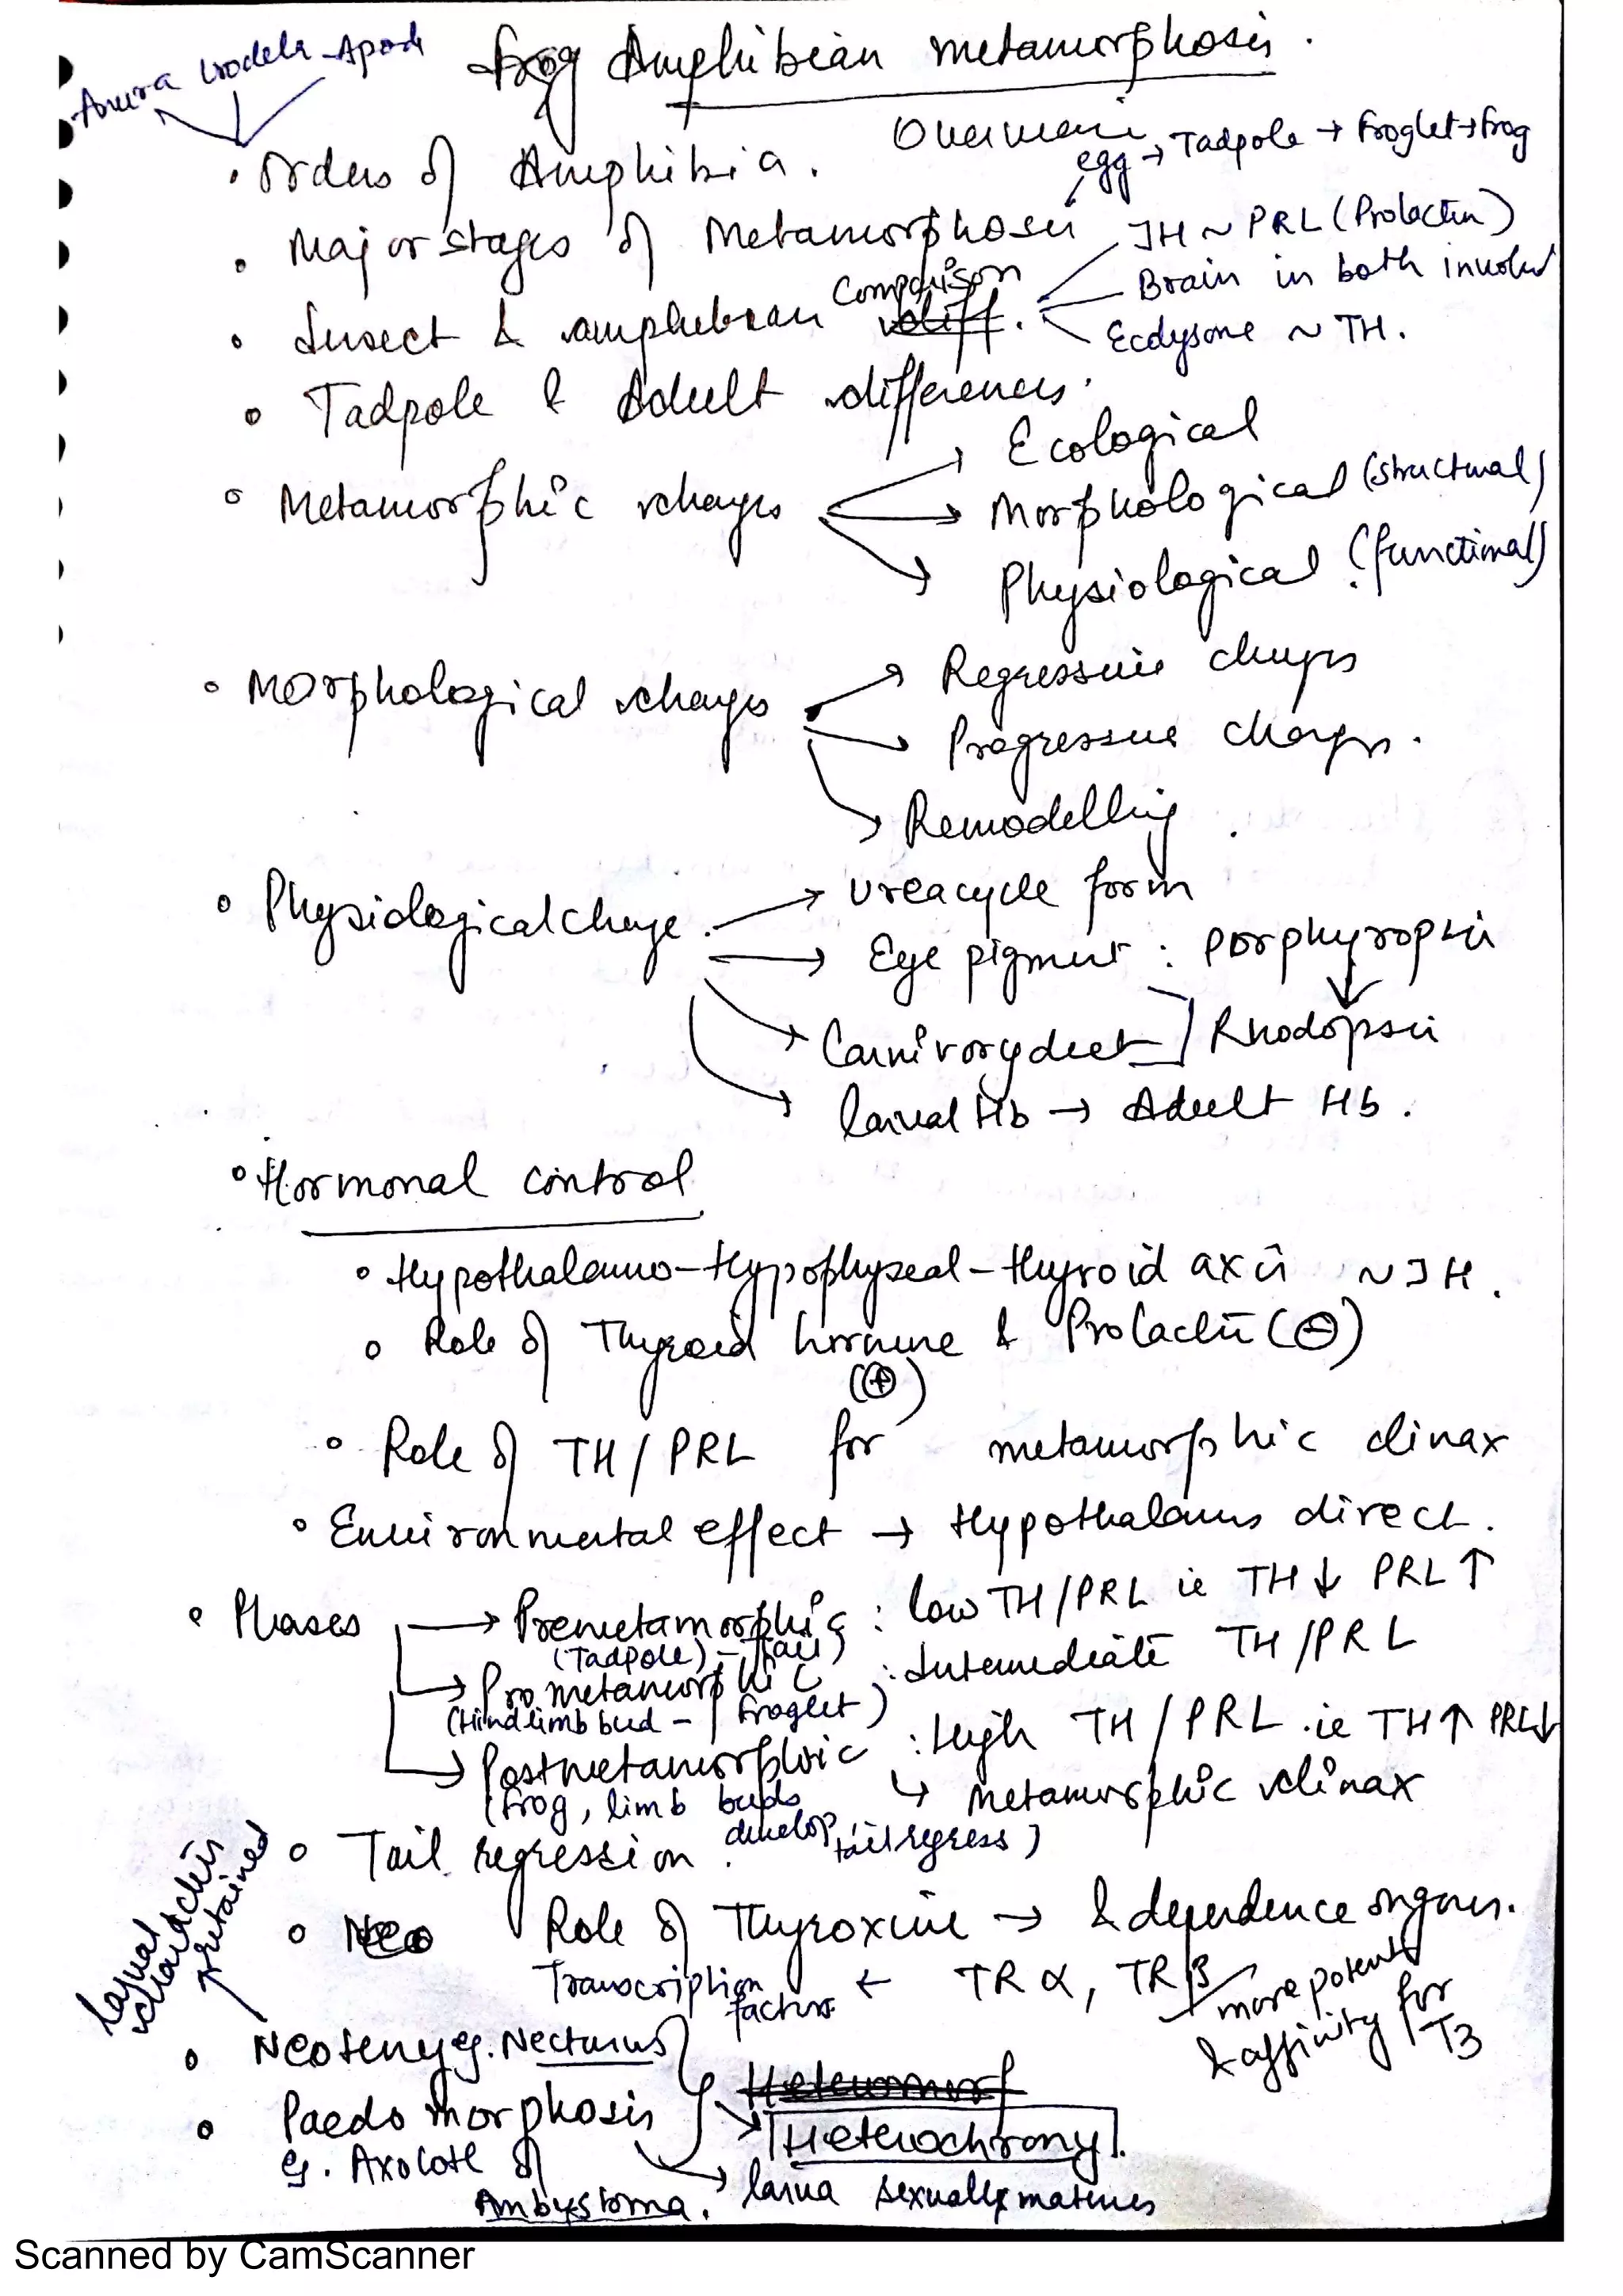 frog Amphibian metamorphosis.
Anura Urodela - Apoda
Overview
• Orders of Amphibia.
egg → Tadpole → Froglet → Frog
• Major stages of Metamorphosis
JH ~ PRL (Prolactin)
• Insect & amphibian Comparison diff.
Brain in both involved
Ecdysone ~ TH.
• Tadpole & Adult differences.
• Metamorphic changes → Ecological
→ Morphological (structural)
→ Physiological (functional)
• Morphological changes → Regressive changes
→ Progressive changes.
→ Remodelling.
• Physiological change. → Ureacycle form
→ Eye pigment : Porphyropsin
↓
→ Carnivory diet ] Rhodopsin
→ larval Hb → Adult Hb.
• Hormonal control
• Hypothalamo-Hypophyseal-thyroid axis ~ JH.
• Role of Thyroid hormone & Prolactin (⊖)
(⊕)
• Role of TH/PRL for metamorphic climax
• Environmental effect → Hypothalamus direct.
• Phases → Premetamorphic : low TH/PRL ie TH↓ PRL↑
(Tadpole) - tail)
→ Prometamorphic : Intermediate TH/PRL
(Hindlimb bud - froglet)
→ Postmetamorphoic : High TH/PRL .ie TH↑ PRL↓
↳ Metamorphic climax
(frog, limb buds
develop, tail regress)
• Tail regression.
• Neo Role of Thyroxine → & dependence organs.
Transcription factors ← TRα, TRβ
more potent
& affinity for
T3
larval
characters
retained
• Neoteny eg. Necturus
Heteromorf
• Paedomorphosis
Heterochrony.
eg. Axolotl of
Ambystoma.
→ larva sexually matures
Scanned by CamScanner